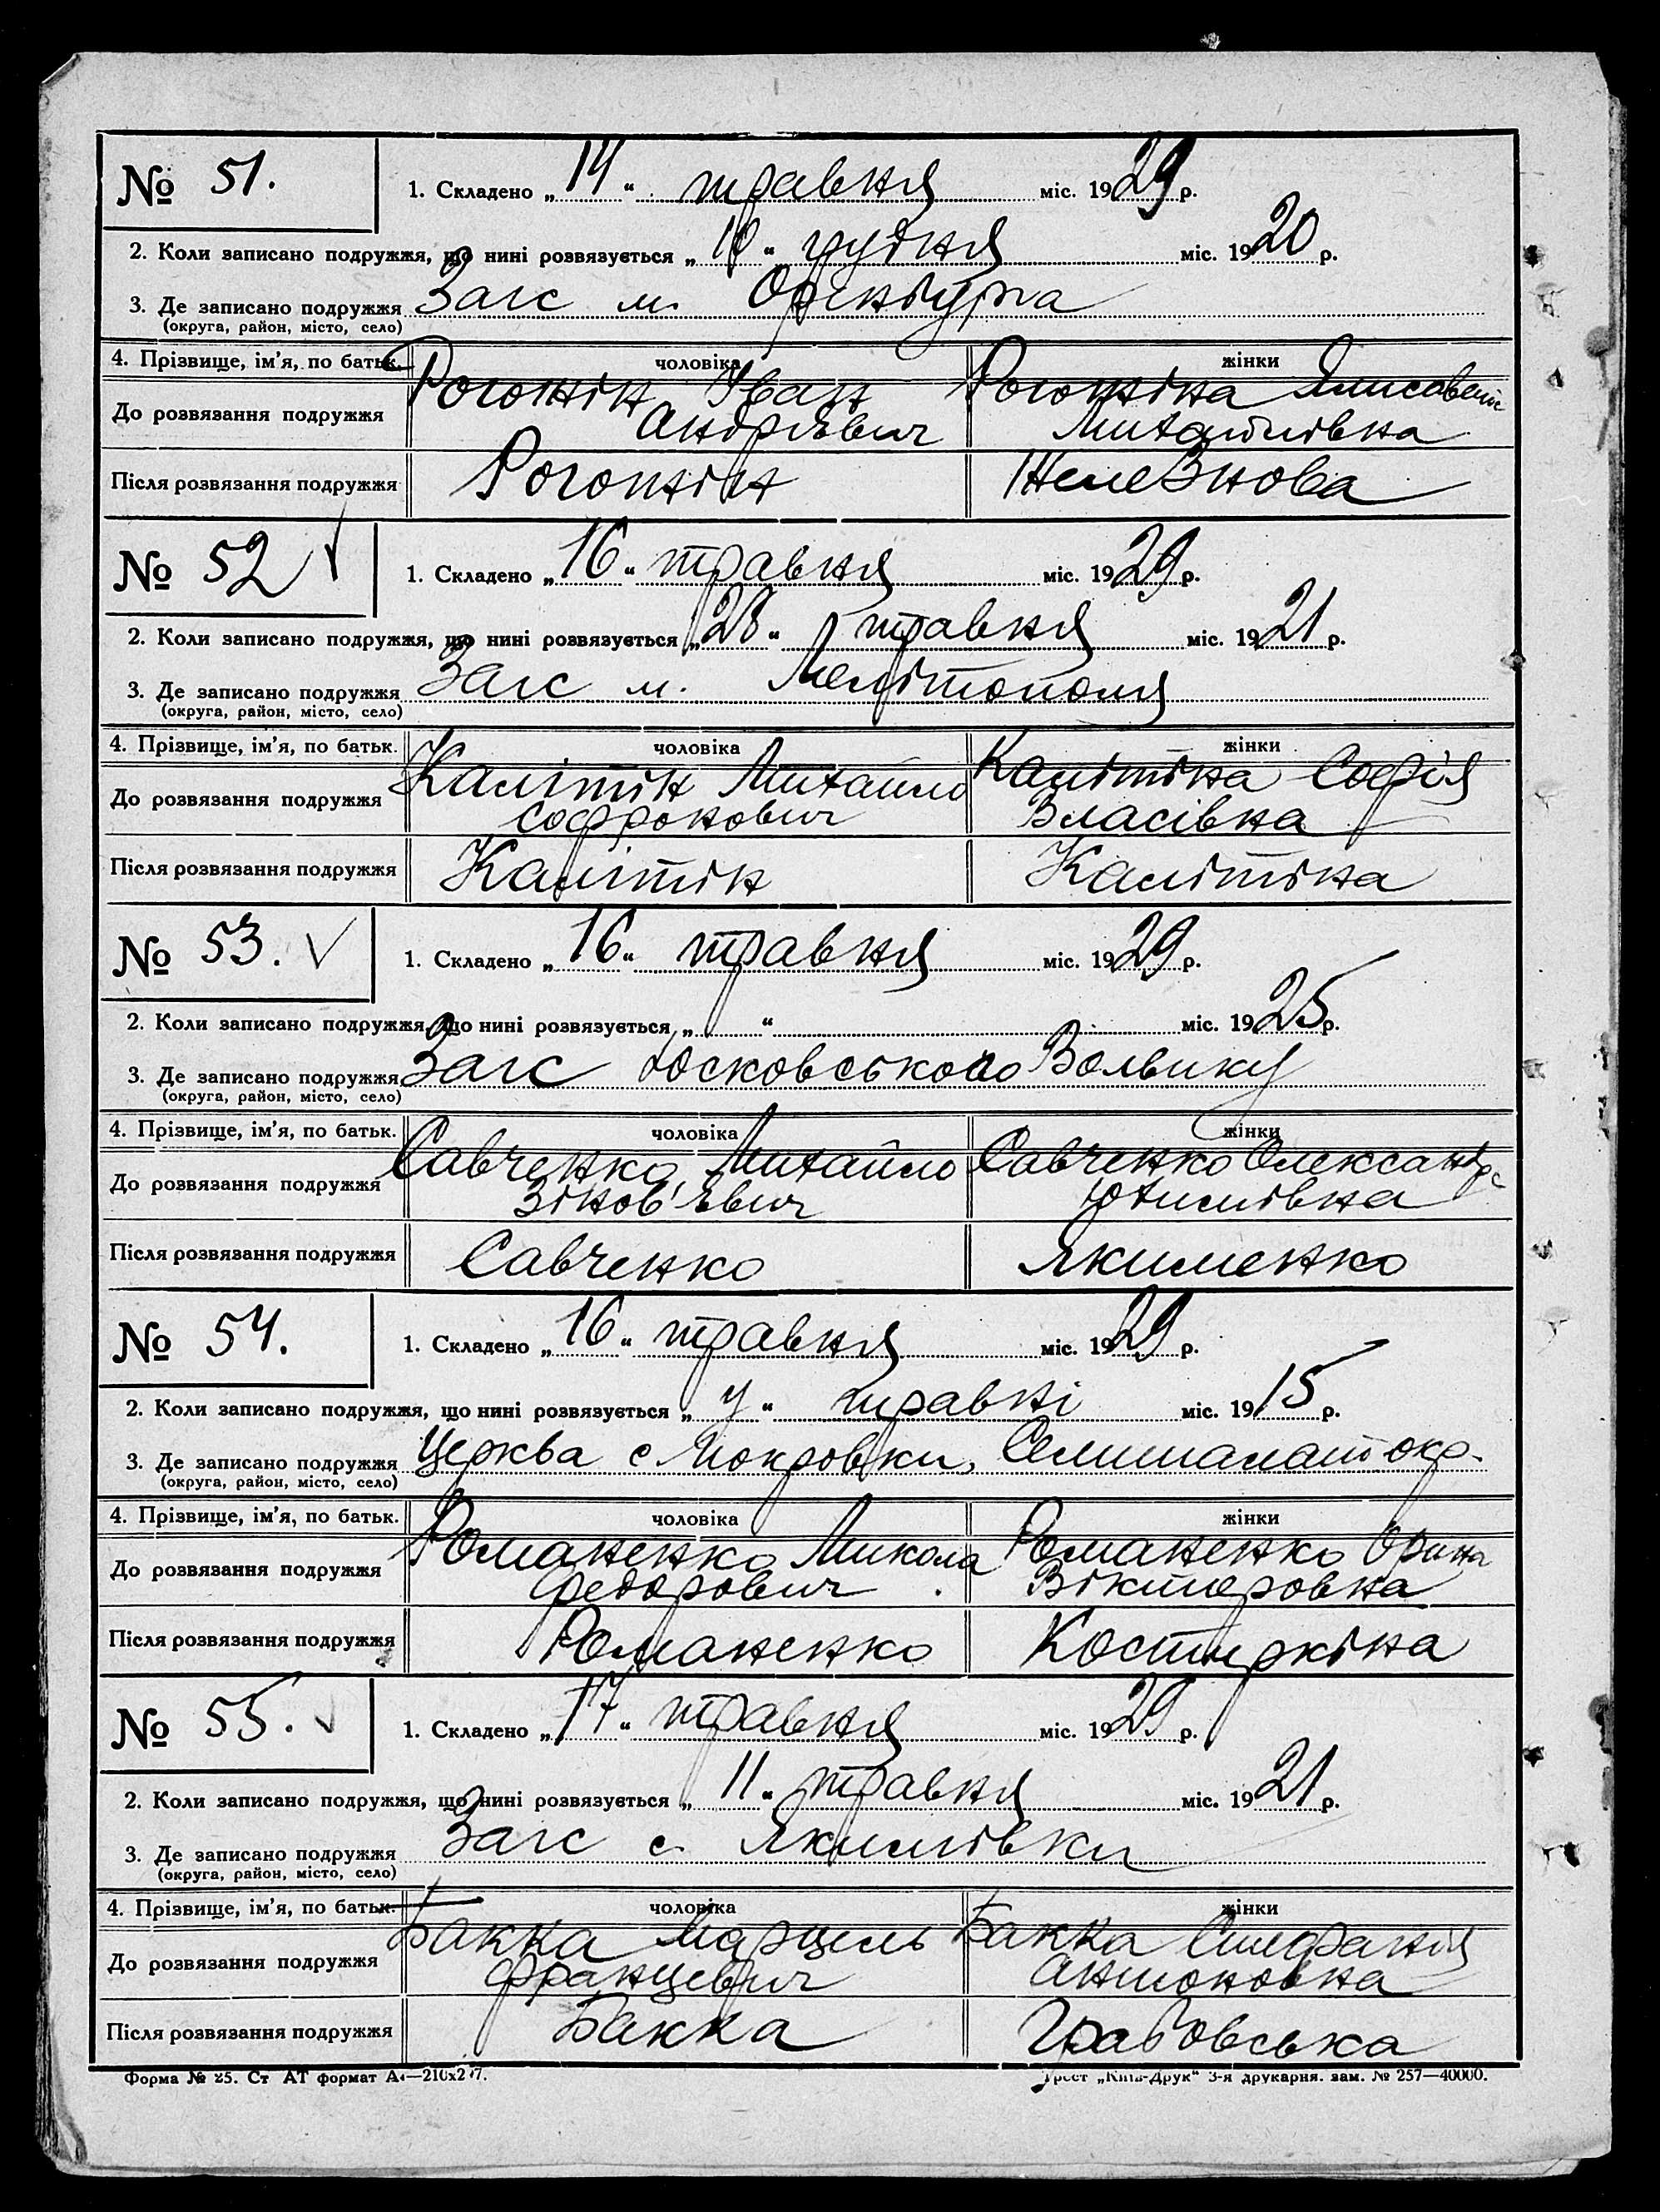 № 51.
1. Складено „14“ травня міс. 1929 р.
2. Коли записано подружжя, що нині розвязується „10“ грудня міс. 1920 р.
3. Де записано подружжя Загс м. Оренбурга
(округа, район, місто, село)
4. Прізвище, ім’я, по батьк. чоловіка жінки
До розвязання подружжя Рогожін Іван Рогожіна Єлисавета
Андрієвич Михайлівна
Після розвязання подружжя Рогожін Желєзнова
№ 52
1. Складено „16“ травня міс. 1929 р.
2. Коли записано подружжя, що нині розвязується „28“ травня міс. 1921 р.
3. Де записано подружжя Загс м. Мелітополя
(округа, район, місто, село)
4. Прізвище, ім’я, по батьк. чоловіка жінки
До розвязання подружжя Калітін Михайло Калітіна Софія
Софронович Власівна
Після розвязання подружжя Калітін Калітіна
№ 53.
1. Складено „16“ травня міс. 1929 р.
2. Коли записано подружжя, що нині розвязується „ “ міс. 1925 р.
3. Де записано подружжя Загс
(округа, район, місто, село)
4. Прізвище, ім’я, по батьк. чоловіка жінки
До розвязання подружжя Савченко Михайло Савченко Олександра
Зінов’євич Юхимівна
Після розвязання подружжя Савченко Якименко
№ 54.
1. Складено „16“ травня міс. 1929 р.
2. Коли записано подружжя, що нині розвязується „у“ травні міс. 1915 р.
3. Де записано подружжя Церква с Покровки, Семипалат окр.
(округа, район, місто, село)
4. Прізвище, ім’я, по батьк. чоловіка жінки
До розвязання подружжя Романенко Микола Романенко Орина
Федорович Вікторовна
Після розвязання подружжя Романенко Костиркіна
№ 55.
1. Складено „17“ травня міс. 1929 р.
2. Коли записано подружжя, що нині розвязується „11“ травня міс. 1921 р.
3. Де записано подружжя Загс с. Якимівки
(округа, район, місто, село)
4. Прізвище, ім’я, по батьк. чоловіка жінки
До розвязання подружжя Бакка Марцель Бакка Стефанія
Францевич Антоновна
Після розвязання подружжя Бакка Грабовська
Форма № 25. Ст АТ формат А4—210х297. Трест „Київ-Друк“ 3-я друкарня. зам. № 257—40000.